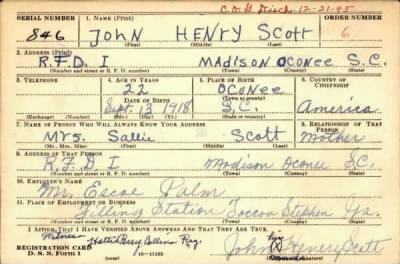 C.O.G Disch. 12-21-45
SERIAL NUMBER 1. NAME (Print) ORDER NUMBER
846 JOHN HENRY Scott 6
(First) (Middle) (Last)
2. ADDRESS (Print)
R.F.D. I MADISON OCONEE S.C.
(Number and street or R. F. D. number) (Town) (County) (State)
3. TELEPHONE 4. AGE IN YEARS 5. PLACE OF BIRTH 6. COUNTRY OF CITIZENSHIP
22 OCONEE
DATE OF BIRTH (Town or county)
Sept. 13 1918 S.C. America
(Exchange) (Number) (Mo.) (Day) (Yr.) (State or country)
7. NAME OF PERSON WHO WILL ALWAYS KNOW YOUR ADDRESS 8. RELATIONSHIP OF THAT PERSON
Mrs. Sallie Scott Mother
(Mr., Mrs., Miss) (First) (Middle) (Last)
9. ADDRESS OF THAT PERSON
R.F.D I Madison Oconee S.C.
(Number and street or R. F. D. number) (Town) (County) (State)
10. EMPLOYER'S NAME
Mr. Escoe Palm
11. PLACE OF EMPLOYMENT OR BUSINESS
Filling Station Toccoa Stephen Ga.
(Number and street or R. F. D. number) (Town) (County) (State)
I AFFIRM THAT I HAVE VERIFIED ABOVE ANSWERS AND THAT THEY ARE TRUE.
Witness his
Hattie Perry Collins Reg. John X Henery Scott
REGISTRATION CARD
D. S. S. Form 1 16-17105